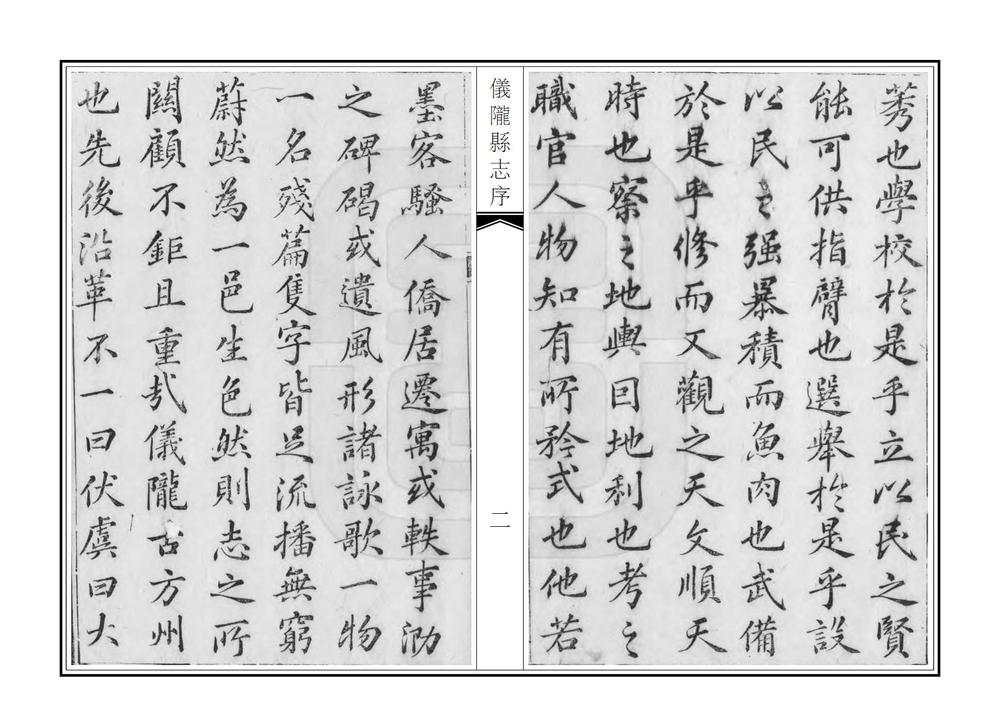 莠也學校於是乎立以民之賢
能可供指臂也選舉於是乎設
以民之强暴積而魚肉也武備
於是乎修而又觀之天文順天
時也察之地輿因地利也考之
職官人物知有所矜式也他若
儀隴縣志序
二
墨客騷人僑居遷寓或軼事泐
之碑碣或遺風形諸詠歌一物
一名殘篇隻字皆足流播無窮
蔚然為一邑生色然則志之所
關顧不鉅且重哉儀隴古方州
也先後沿革不一曰伏虞曰大